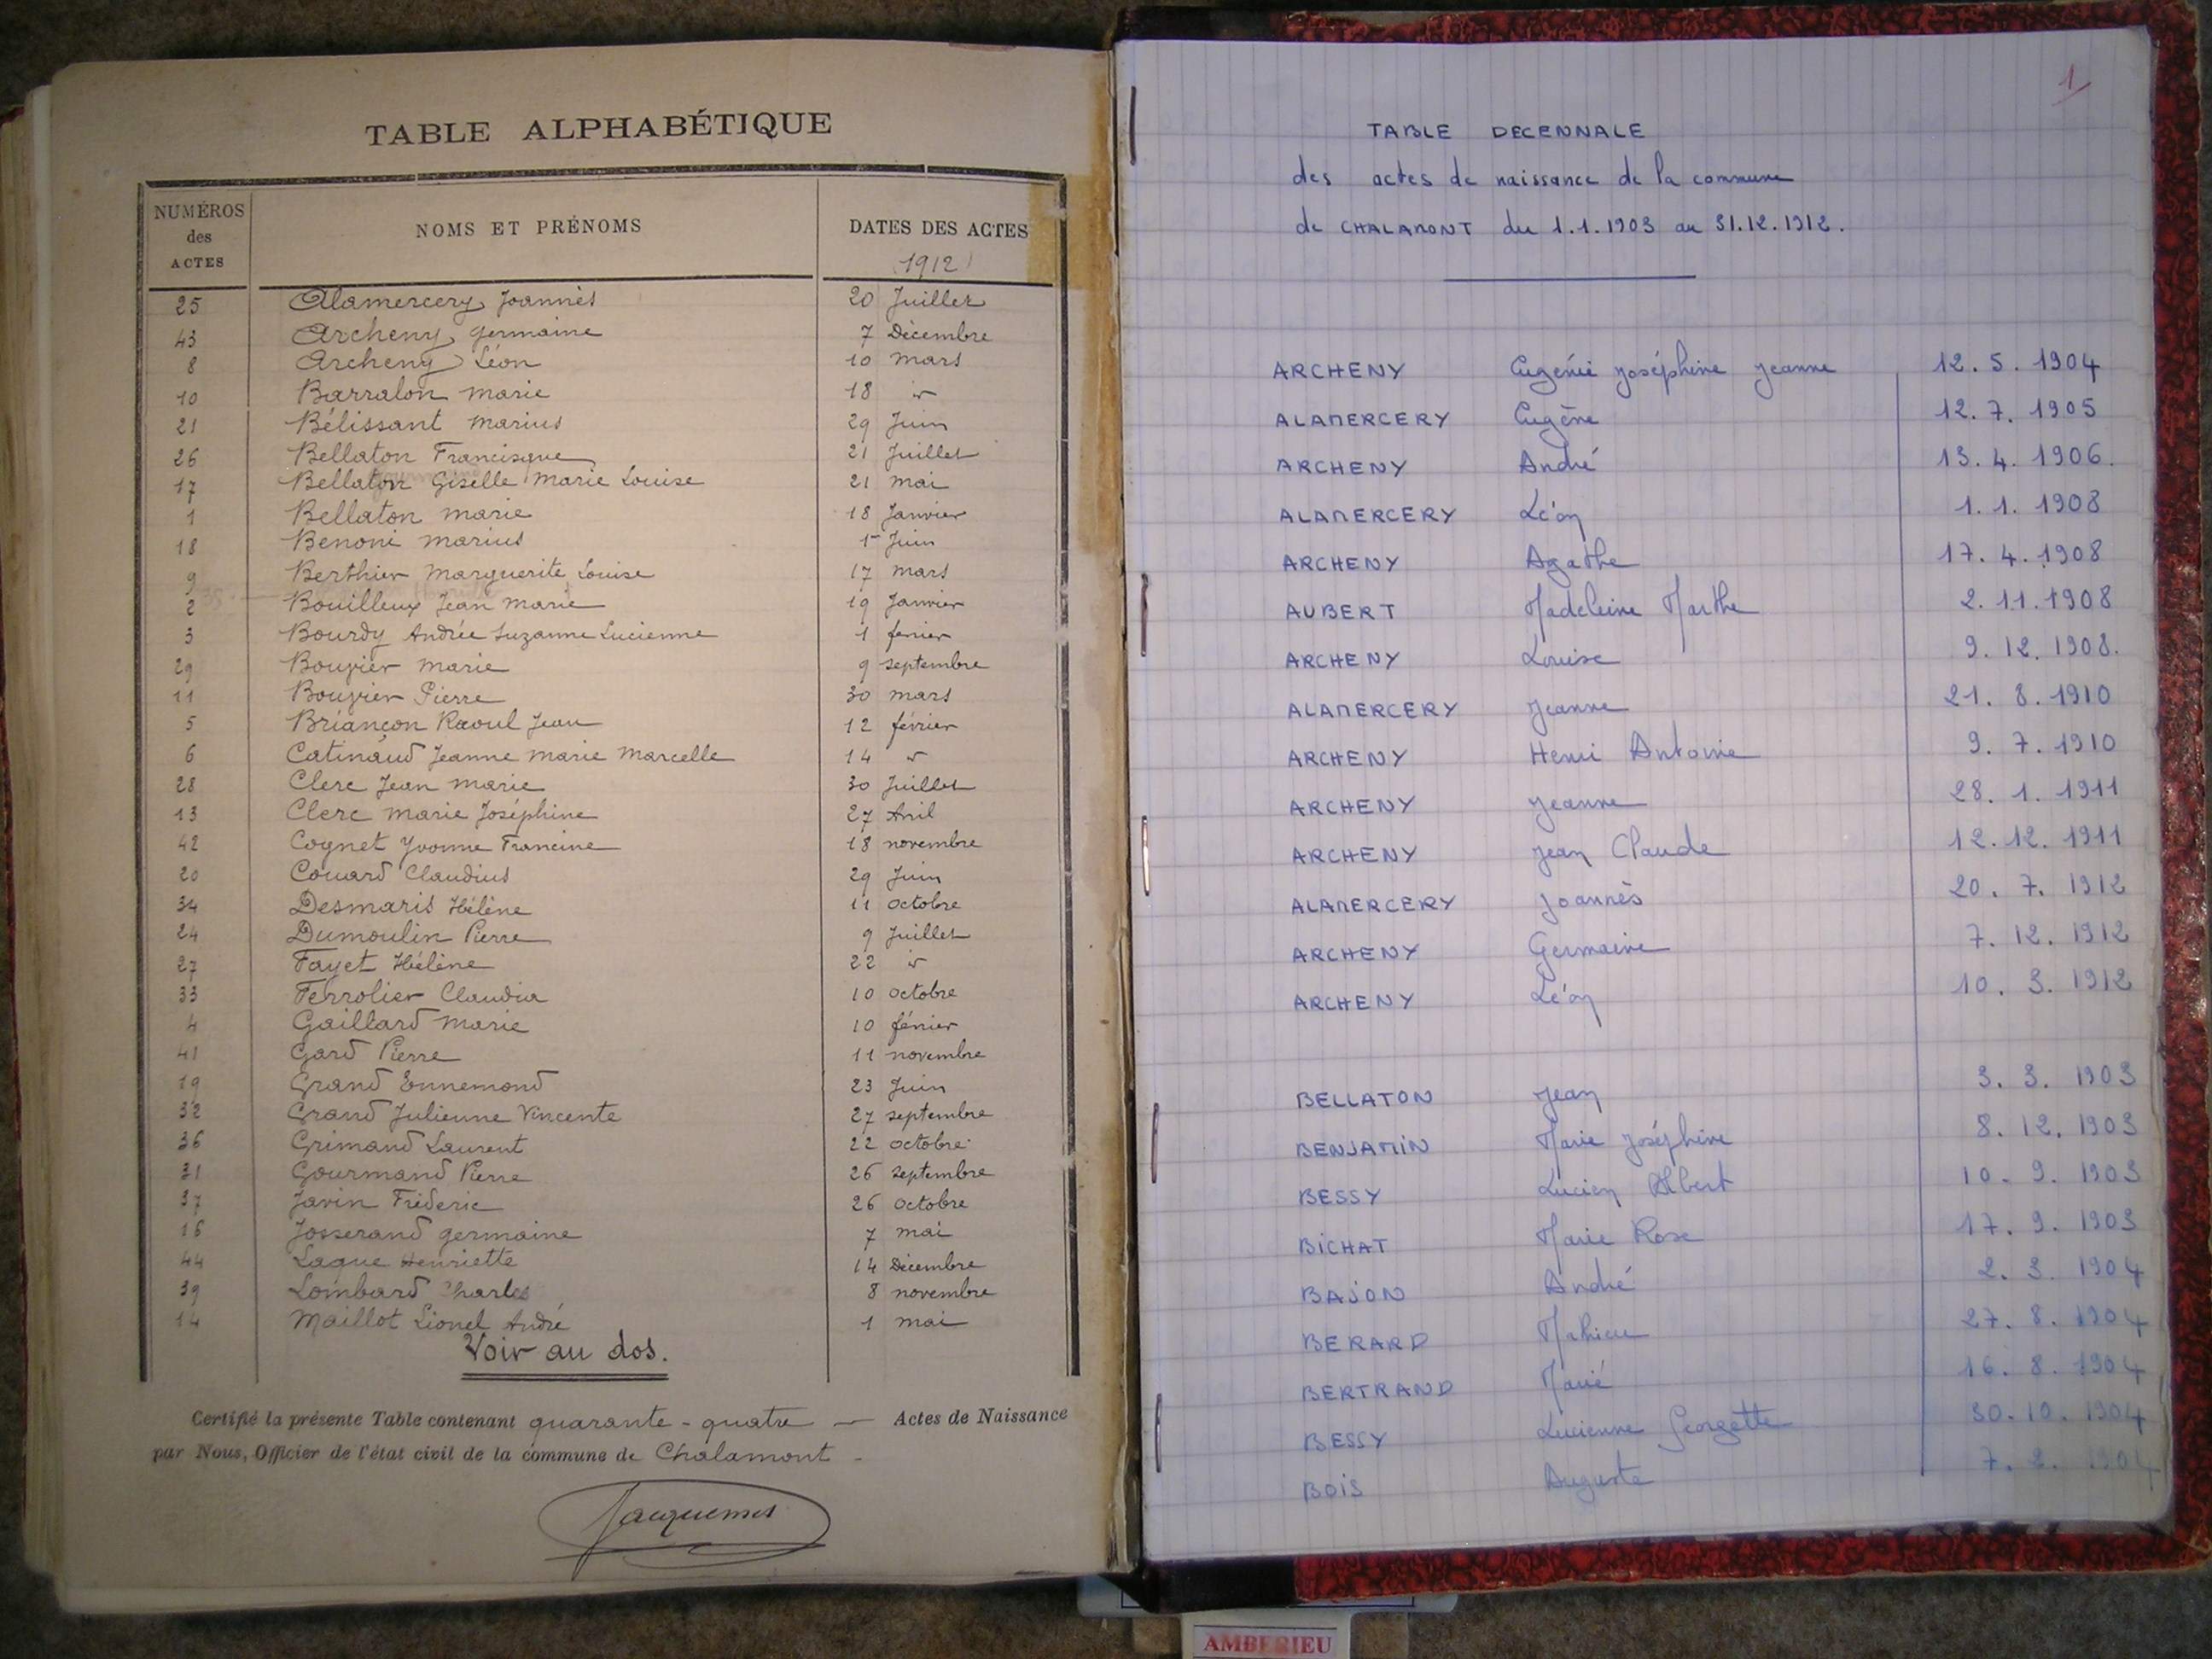 TABLE ALPHABÉTIQUE
NUMÉROS des ACTES NOMS ET PRÉNOMS DATES DES ACTES (1912)
25 Alamercery Joannès 20 Juillet
43 Archeny germaine 7 Décembre
8 Archeny Léon 10 mars
10 Barralon marie 18 "
21 Bélissant marius 29 Juin
26 Bellaton Francisque 21 Juillet
17 Bellaton Giselle Marie Louise 21 mai
1 Bellaton marie 18 Janvier
18 Benoni marius 1er Juin
9 Berthier Marguerite Louise 17 mars
2 Bouilleux Jean marie 19 Janvier
3 Bourdy Andrée Suzanne Lucienne 1 fevrier
29 Bouvier marie 9 septembre
11 Bouvier Pierre 30 mars
5 Briançon Raoul Jean 12 février
6 Catinaud Jeanne marie Marcelle 14 "
28 Clerc Jean marie 30 Juillet
13 Clerc marie Joséphine 27 Avril
42 Cognet Yvonne Francine 18 novembre
20 Couard Claudius 29 Juin
34 Desmaris Hélène 11 octobre
24 Dumoulin Pierre 9 Juillet
27 Fayet Hélène 22 "
33 Ferrolier Claudia 10 octobre
4 Gaillard marie 10 février
41 Gard Pierre 11 novembre
19 Grand Ennemond 23 Juin
32 Grand Julienne Vincente 27 septembre
36 Grimand Laurent 22 octobre
31 Gourmand Pierre 26 septembre
37 Javin Fréderic 26 octobre
16 Josserand germaine 7 mai
44 Lague Henriette 14 Décembre
39 Lombard Charles 8 novembre
14 Maillot Lionel André 1 mai
Voir au dos.
Certifié la présente Table contenant quarante-quatre — Actes de Naissance
par Nous, Officier de l'état civil de la commune de Chalamont -
Jacquemet
1
TABLE DECENNALE
des actes de naissance de la commune
de CHALAMONT du 1.1.1903 au 31.12.1912.
ARCHENY Eugénie Joséphine Jeanne 12.5.1904
ALAMERCERY Eugène 12.7.1905
ARCHENY André 13.4.1906.
ALAMERCERY Léon 1.1.1908
ARCHENY Agathe 17.4.1908
AUBERT Madeleine Marthe 2.11.1908
ARCHENY Louise 9.12.1908.
ALAMERCERY Jeanne 21.8.1910
ARCHENY Henri Antoine 9.7.1910
ARCHENY Jeanne 28.1.1911
ARCHENY Jean Claude 12.12.1911
ALAMERCERY Joannès 20.7.1912
ARCHENY Germaine 7.12.1912
ARCHENY Léon 10.3.1912
BELLATON Jean 3.3.1903
BENJAMIN Marie Joséphine 8.12.1903
BESSY Lucien Albert 10.9.1903
BICHAT Marie Rose 17.9.1903
BAJON André 2.3.1904
BERARD Mathieu 27.8.1904
BERTRAND Marié 16.8.1904
BESSY Lucienne Georgette 30.10.1904
BOIS Auguste 7.2.1904
AMBERIEU